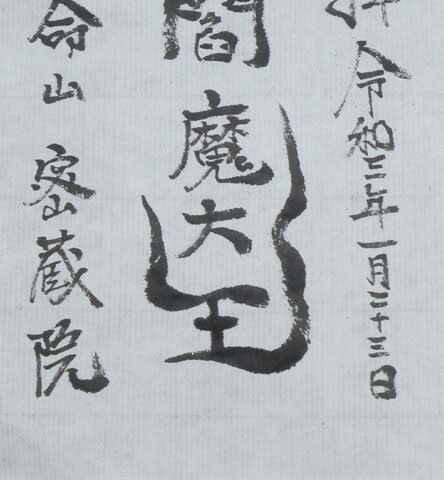 令和三年一月二十三日
閻魔大王
命山 密蔵院